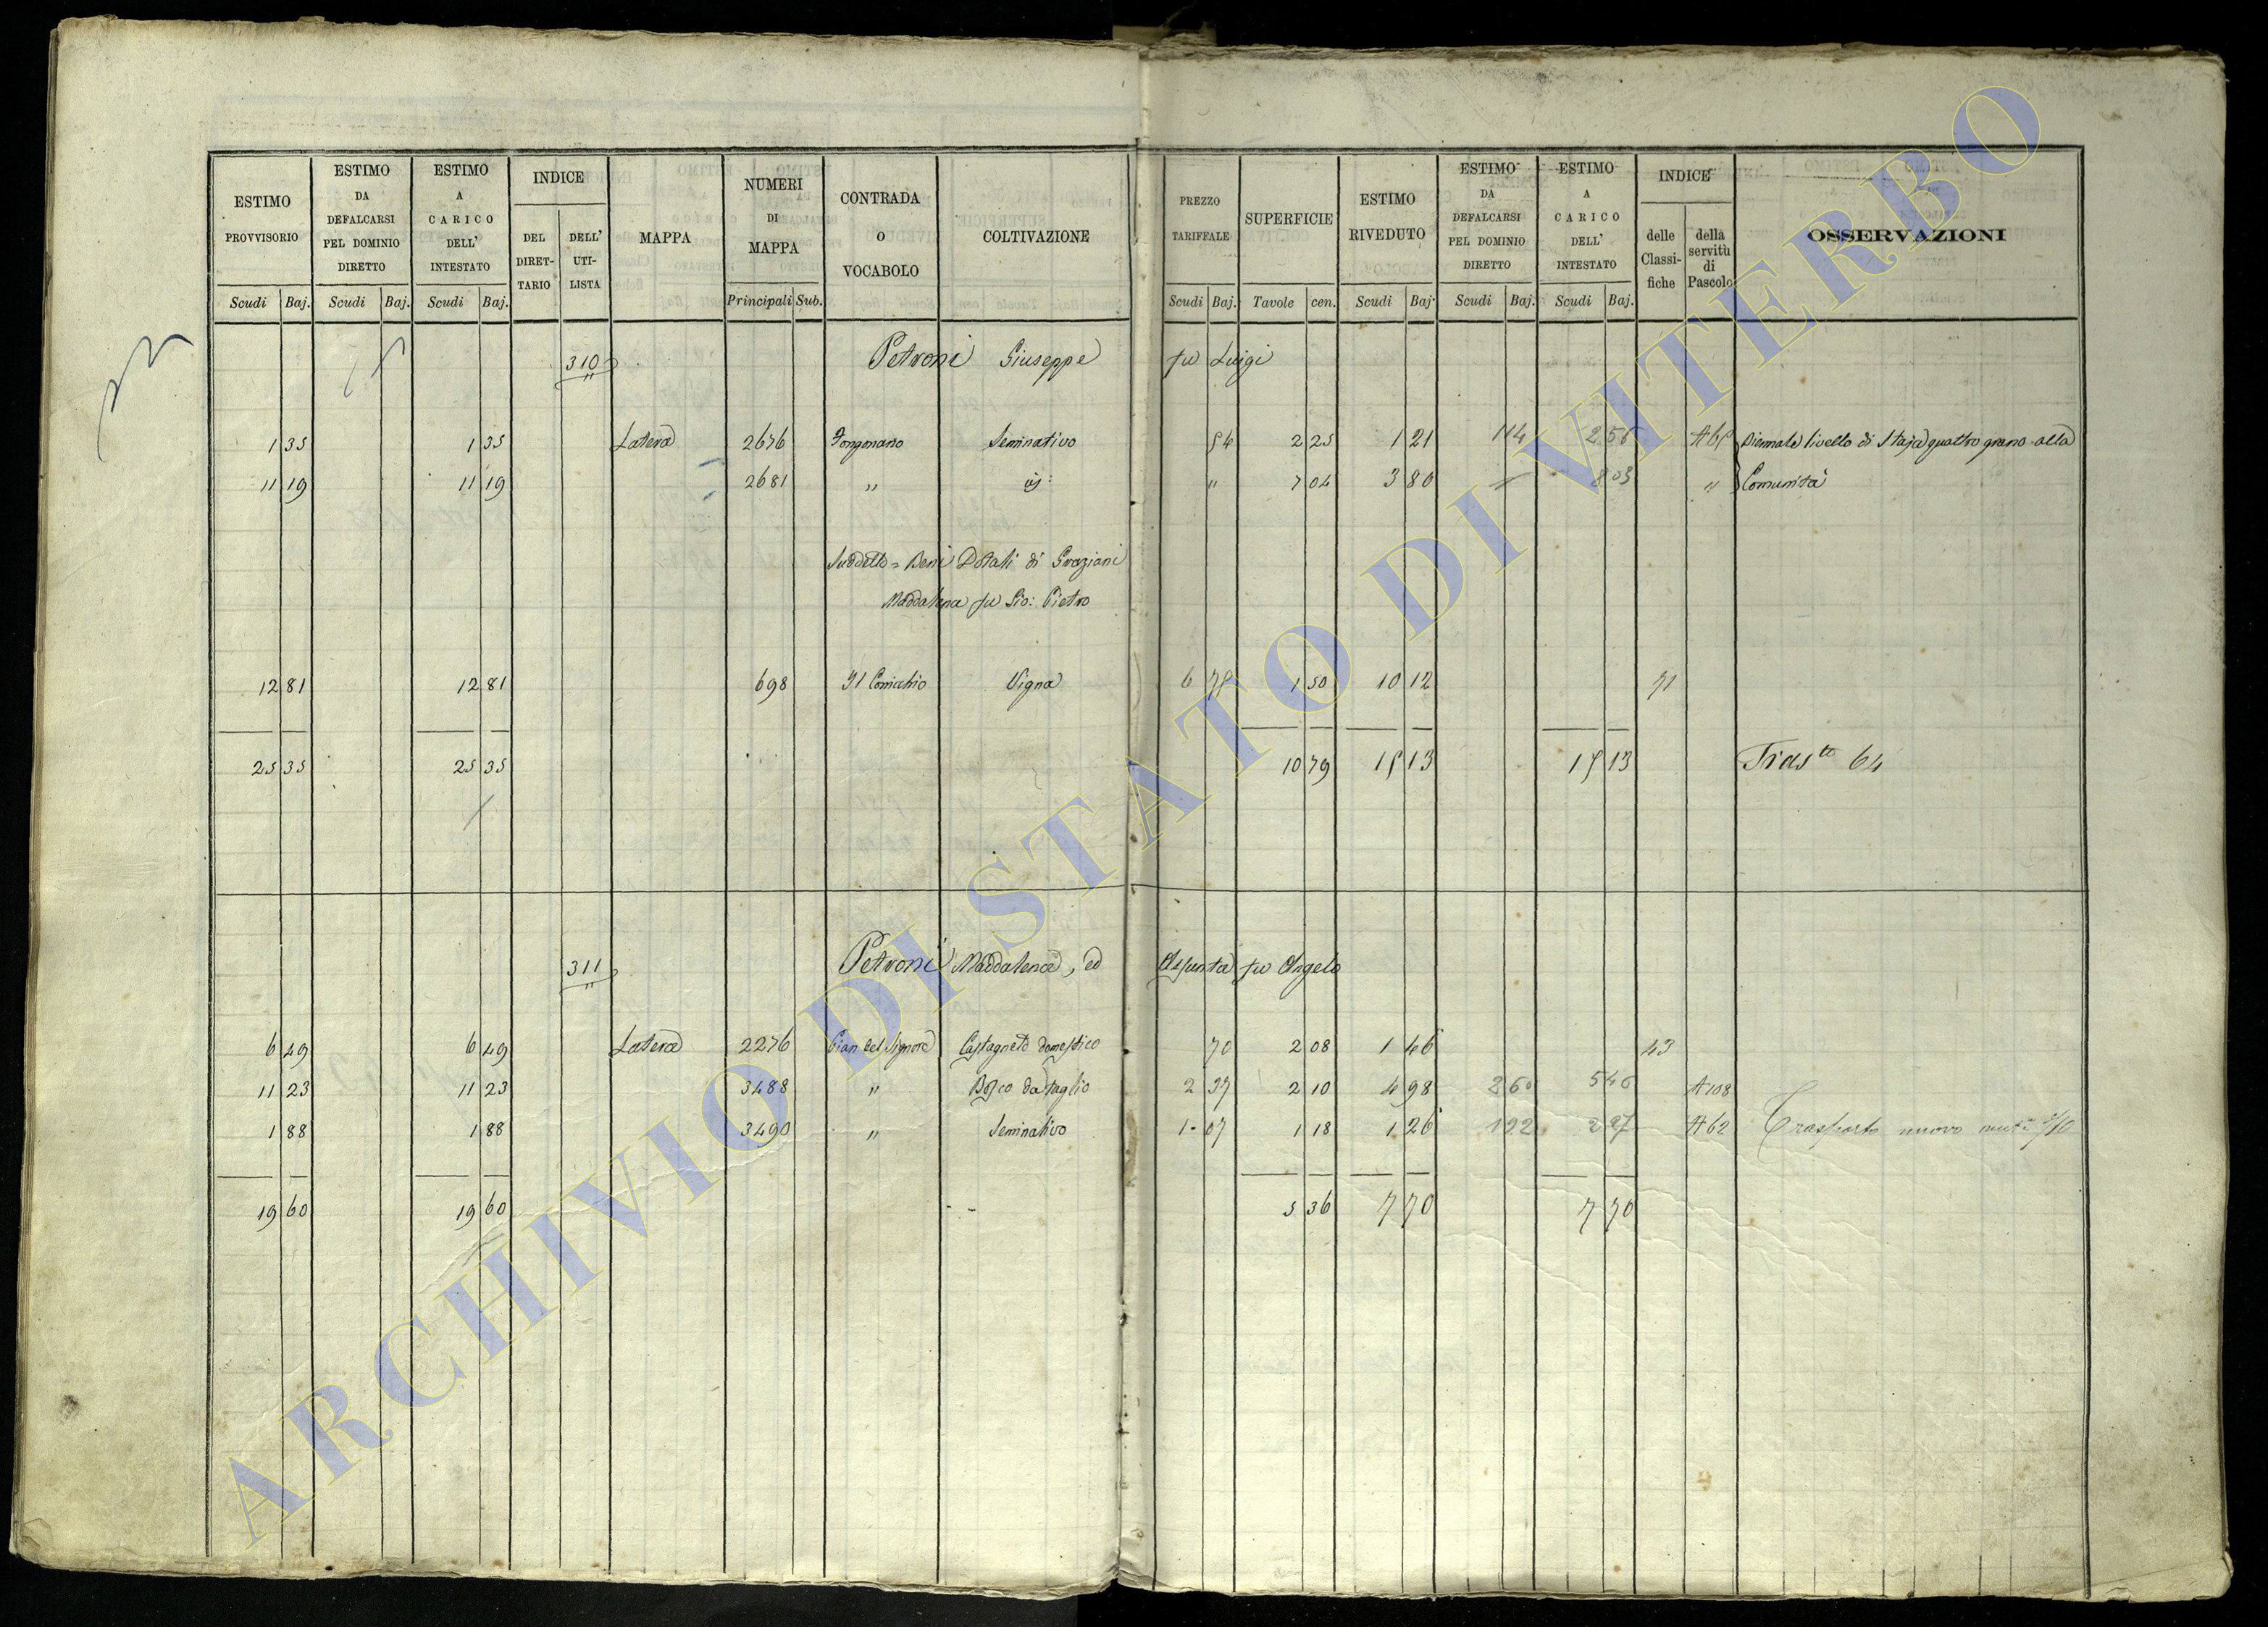 ESTIMO PROVVISORIO | ESTIMO DA DEFALCARSI PEL DOMINIO DIRETTO | ESTIMO A CARICO DELL' INTESTATO | INDICE | MAPPA | NUMERI DI MAPPA | CONTRADA O VOCABOLO | COLTIVAZIONE | PREZZO TARIFFALE | SUPERFICIE | ESTIMO RIVEDUTO | ESTIMO DA DEFALCARSI PEL DOMINIO DIRETTO | ESTIMO A CARICO DELL' INTESTATO | INDICE | OSSERVAZIONI
DEL DIRETTARIO | DELL' UTILISTA | delle Classifiche | della servitù di Pascolo
Scudi | Baj. | Scudi | Baj. | Scudi | Baj. | Principali | Sub. | Scudi | Baj. | Tavole | cen. | Scudi | Baj. | Scudi | Baj. | Scudi | Baj.
310 Petroni Giuseppe fu Luigi
1 35 | 1 35 | Latera | 2676 | Seminativo | 54 | 2 25 | 1 21 | 114 | Biennale livello di Staja quattro grano alla
11 19 | 11 19 | 2681 | " | id: | " | 7 04 | 3 80 | " | Comunità
Suddetto = Beni Dotali di Graziani
Maddalena fu Gio: Pietro
12 81 | 12 81 | 698 | Il | Vigna | 6 75 | 1 50 | 10 12 | 71
25 35 | 25 35 | 10 79 | 15 13 | 15 13 | 64
311 Petroni Maddalena, ed Assunta fu Angelo
6 49 | 6 49 | Latera | 2276 | Pian del Signore | Castagneto domestico | 70 | 2 08 | 1 46 | 43
11 23 | 11 23 | 3488 | " | Bosco da taglio | 2 37 | 2 10 | 4 98 | 260 | 546 | A108
1 88 | 1 88 | 3490 | " | Seminativo | 1 07 | 1 18 | 1 26 | 192 | 227 | A62 | Trasporto nuovo
19 60 | 19 60 | 5 36 | 7 70 | 7 70
ARCHIVIO DI STATO DI VITERBO